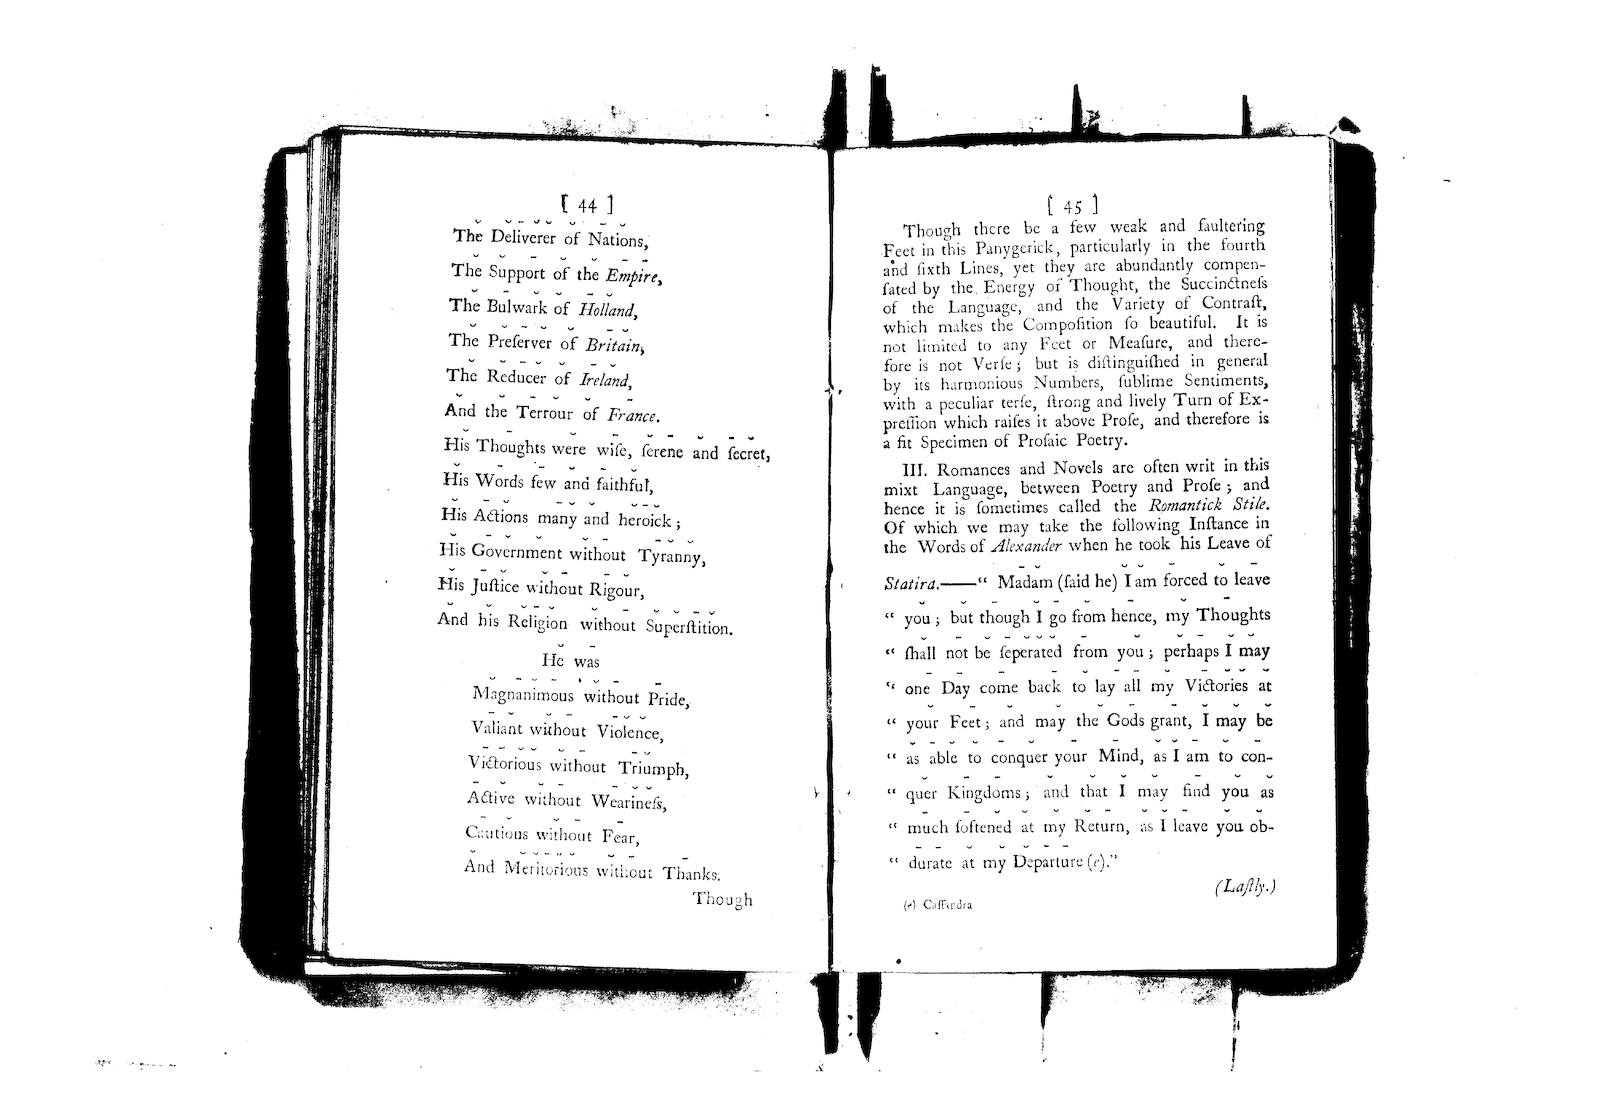 [ 44 ]
The Deliverer of Nations,
The Support of the Empire,
The Bulwark of Holland,
The Preſerver of Britain,
The Reducer of Ireland,
And the Terrour of France.
His Thoughts were wiſe, ſerene and ſecret,
His Words few and faithful,
His Actions many and heroick ;
His Government without Tyranny,
His Juſtice without Rigour,
And his Religion without Superſtition.
He was
Magnanimous without Pride,
Valiant without Violence,
Victorious without Triumph,
Active without Wearineſs,
Cautious without Fear,
And Meritorious without Thanks.
Though
[ 45 ]
Though there be a few weak and faultering
Feet in this Panygerick, particularly in the fourth
and ſixth Lines, yet they are abundantly compen-
ſated by the Energy of Thought, the Succinctneſs
of the Language, and the Variety of Contraſt,
which makes the Compoſition ſo beautiful. It is
not limited to any Feet or Meaſure, and there-
fore is not Verſe ; but is diſtinguiſhed in general
by its harmonious Numbers, ſublime Sentiments,
with a peculiar terſe, ſtrong and lively Turn of Ex-
preſſion which raiſes it above Proſe, and therefore is
a fit Specimen of Proſaic Poetry.
III. Romances and Novels are often writ in this
mixt Language, between Poetry and Proſe ; and
hence it is ſometimes called the Romantick Stile.
Of which we may take the following Inſtance in
the Words of Alexander when he took his Leave of
Statira.——“ Madam (ſaid he) I am forced to leave
“ you ; but though I go from hence, my Thoughts
“ ſhall not be ſeperated from you ; perhaps I may
“ one Day come back to lay all my Victories at
“ your Feet ; and may the Gods grant, I may be
“ as able to conquer your Mind, as I am to con-
“ quer Kingdoms ; and that I may find you as
“ much ſoftened at my Return, as I leave you ob-
“ durate at my Departure (e).”
(Laſtly.)
(e) Caſſandra